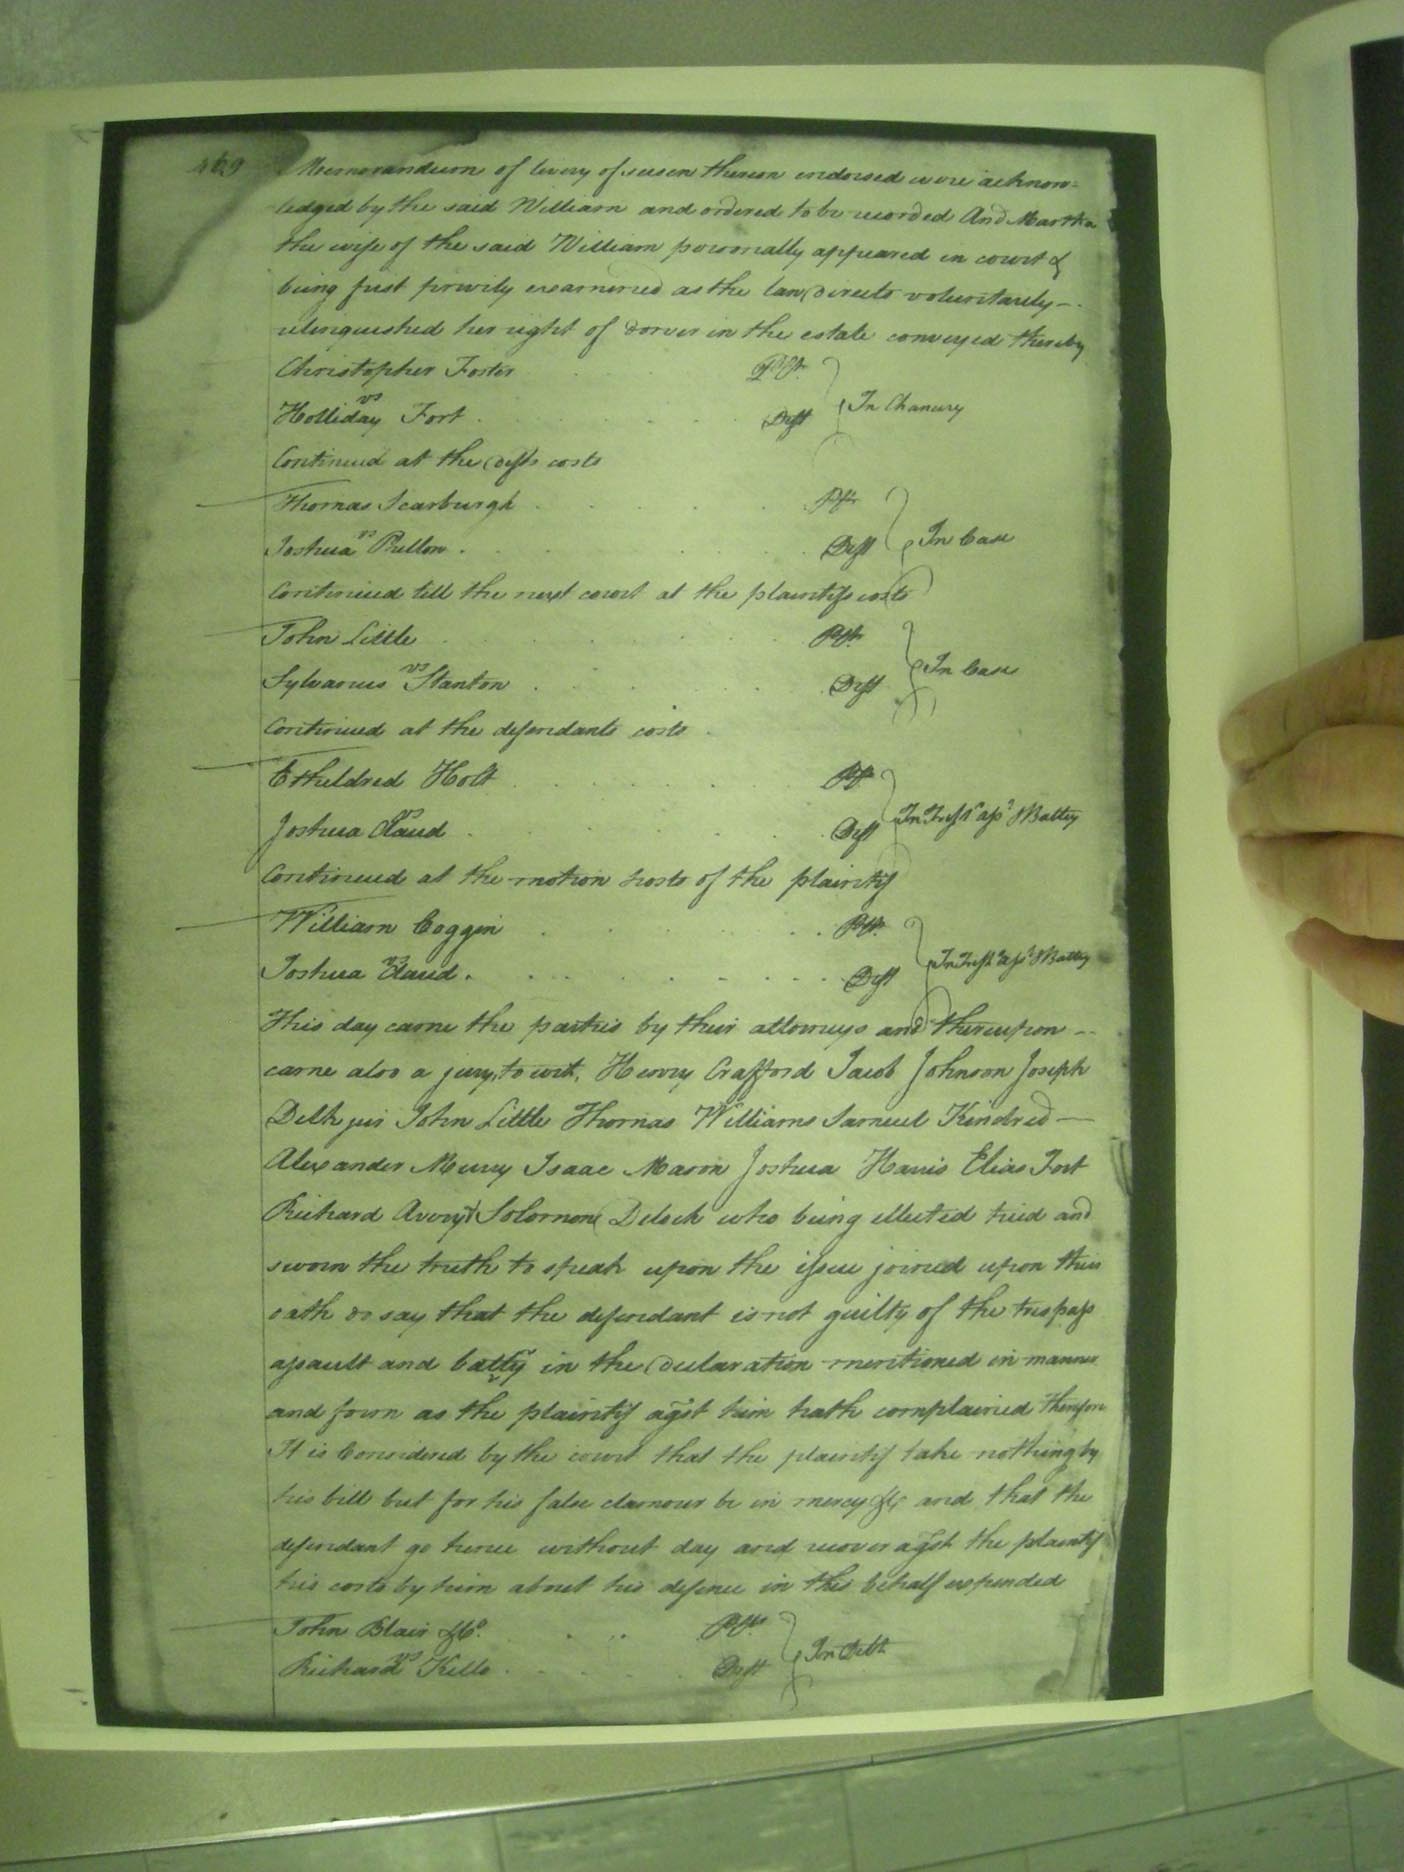 469
Memorandum of livery of seisen thereon endorsed were acknow=
ledged by the said William and ordered to be recorded And Martha
the wife of the said William personally appeared in court &
being first privily examined as the law directs voluntarily -
relinquished her right of dower in the estate conveyed thereby
Christopher Foster . . . Pltf.
vs In Chancery
Holliday Fort . . . Deft
Continued at the defts costs
Thomas Scarburgh . . . Pltf
vs In Case
Joshua . . . Deft
Continued till the next court at the plaintifs costs
John Little . . . Pltf.
vs In Case
Sylvanus Stanton . . . Deft
Continued at the defendants costs
Etheldred Holt . . . Pltf
vs In Tresps ass.t & Battey
Joshua Claud . . . Deft
Continued at the motion & costs of the plaintif
William Coggin . . . Pltf.
vs In Tresps ass.t & Battey
Joshua Claud . . . Deft
This day came the parties by their attorneys and thereupon -
came also a jury, to wit, Henry Crafford Jacob Johnson Joseph
Delk jur John Little Thomas Williams Samuel Kindred -
Alexander Murry Isaac Mason Joshua Harris Elias Fort
Richard Avory & Solomon Deloch who being elected tried and
sworn the truth to speak upon the issue joined upon their
oath do say that the defendant is not guilty of the trespass
assault and battry in the declaration mentioned in manner
and form as the plaintif agst him hath complained Therefore
It is Considered by the court that the plaintif take nothing by
his bill but for his false clamour be in mercy &c and that the
defendant go hence without day and recover agst the plaintif
his costs by him about his defence in this behalf expended
John Blair & Co. . . . Pltfs
vs In Debt
Richard Kello . . . Deft